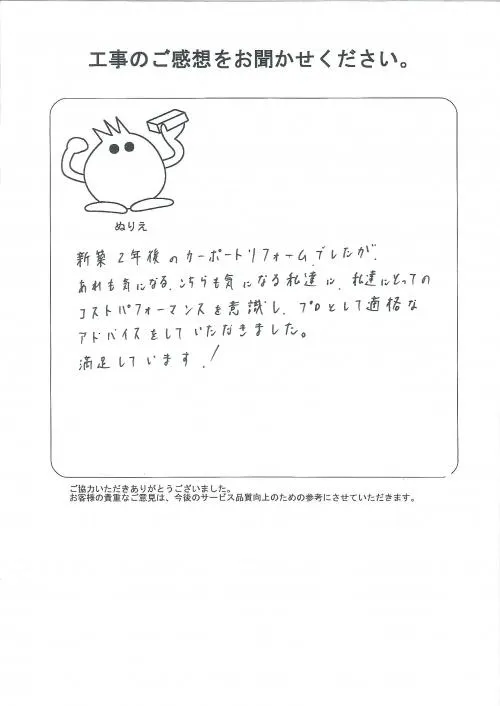 工事のご感想をお聞かせください。
ぬりえ
新築2年後のカーポートリフォームでしたが、
あれも気になる、こちらも気になる私達に、私達にとっての
コストパフォーマンスを意識し、プロとして適格な
アドバイスをしていただきました。
満足しています!
ご協力いただきありがとうございました。
お客様の貴重なご意見は、今後のサービス品質向上のための参考にさせていただきます。